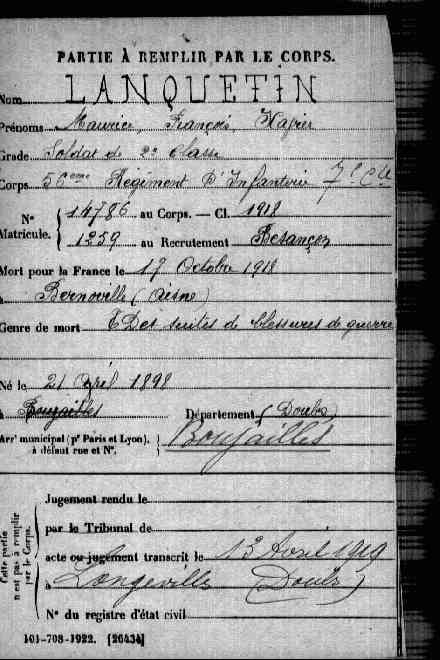 PARTIE À REMPLIR PAR LE CORPS.
Nom LANQUETIN
Prénoms Maurice, François Xavier
Grade Soldat de 2e Classe
Corps 56ème Régiment d'Infanterie 7e Cie
N° Matricule. { 14786 au Corps. — Cl. 1918
1259 au Recrutement Besançon
Mort pour la France le 17 Octobre 1918
à Bernoville (Aisne)
Genre de mort Des suites de blessures de guerre
Né le 21 Avril 1898
à Boujailles Département (Doubs)
Arrt municipal (pr Paris et Lyon), à défaut rue et N°. } Boujailles
Cette partie n'est pas à remplir par le Corps.
Jugement rendu le
par le Tribunal de
acte ou jugement transcrit le 13 Avril 1919
à Longeville (Doubs)
N° du registre d'état civil
101-708-1922. [26434]